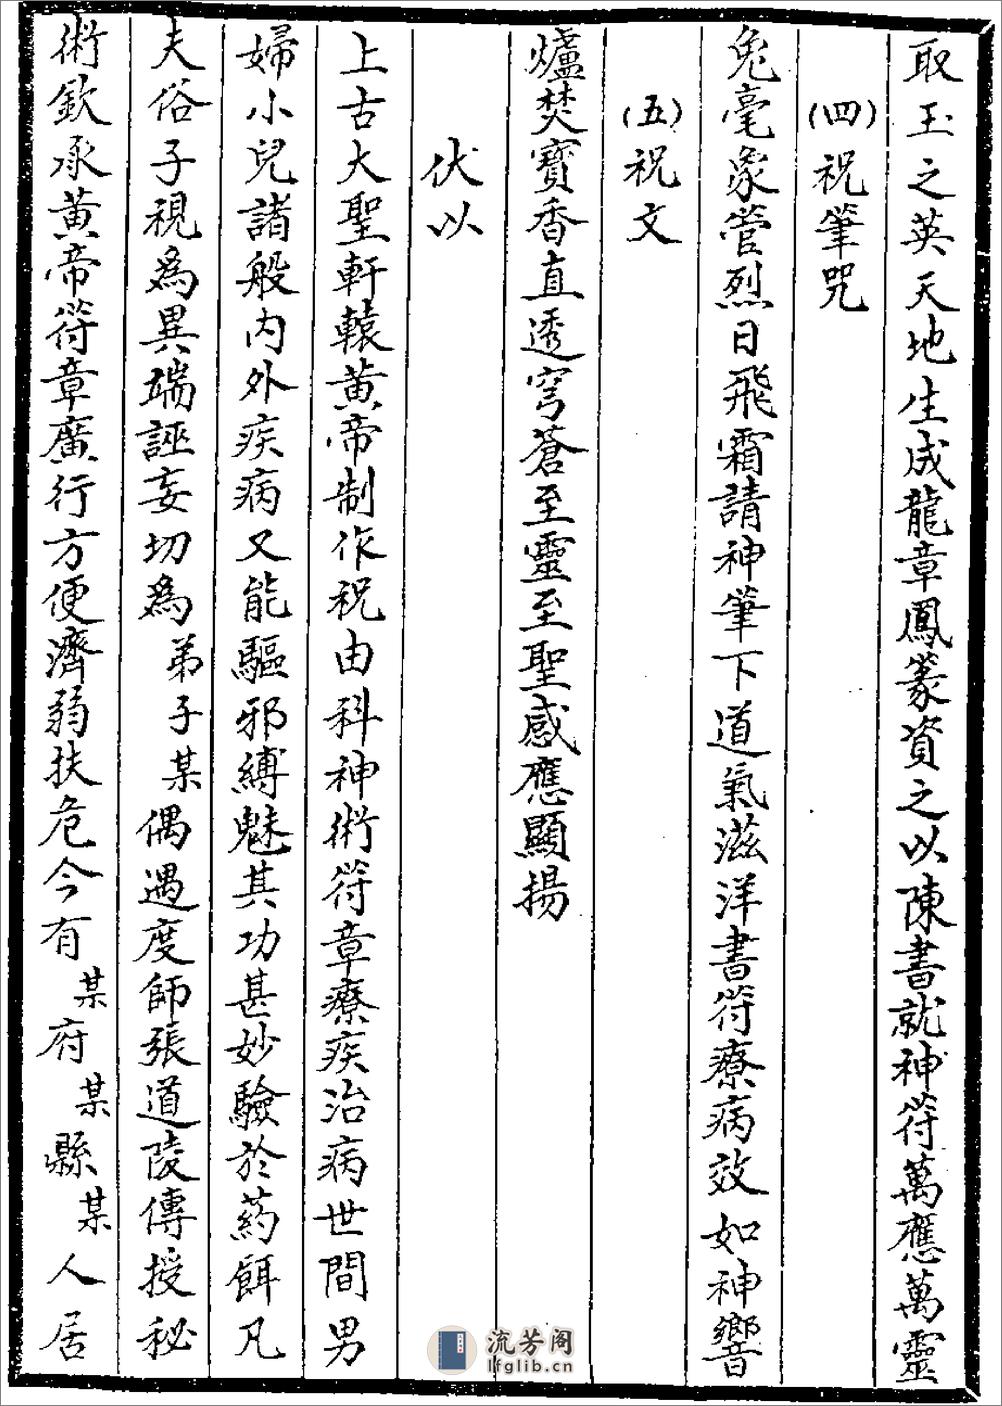 取玉之英天地生成龍章鳳篆資之以陳書就神符萬應萬靈
(四)祝筆咒
兔毫象管烈日飛霜請神筆下道氣滋洋書符療病效如神響
(五)祝文
爐焚寶香直透穹蒼至靈至聖感應顯揚
伏以
上古大聖軒轅黄帝制作祝由科神術符章療疾治病世間男
婦小兒諸般内外疾病又能驅邪縛魅其功甚妙驗於葯餌凡
夫俗子視為異端誣妄切為弟子某偶遇度師張道陵傳授秘
術欽承黄帝符章廣行方便濟弱扶危今有某府某縣某人居
流芳阁
lfglib.cn